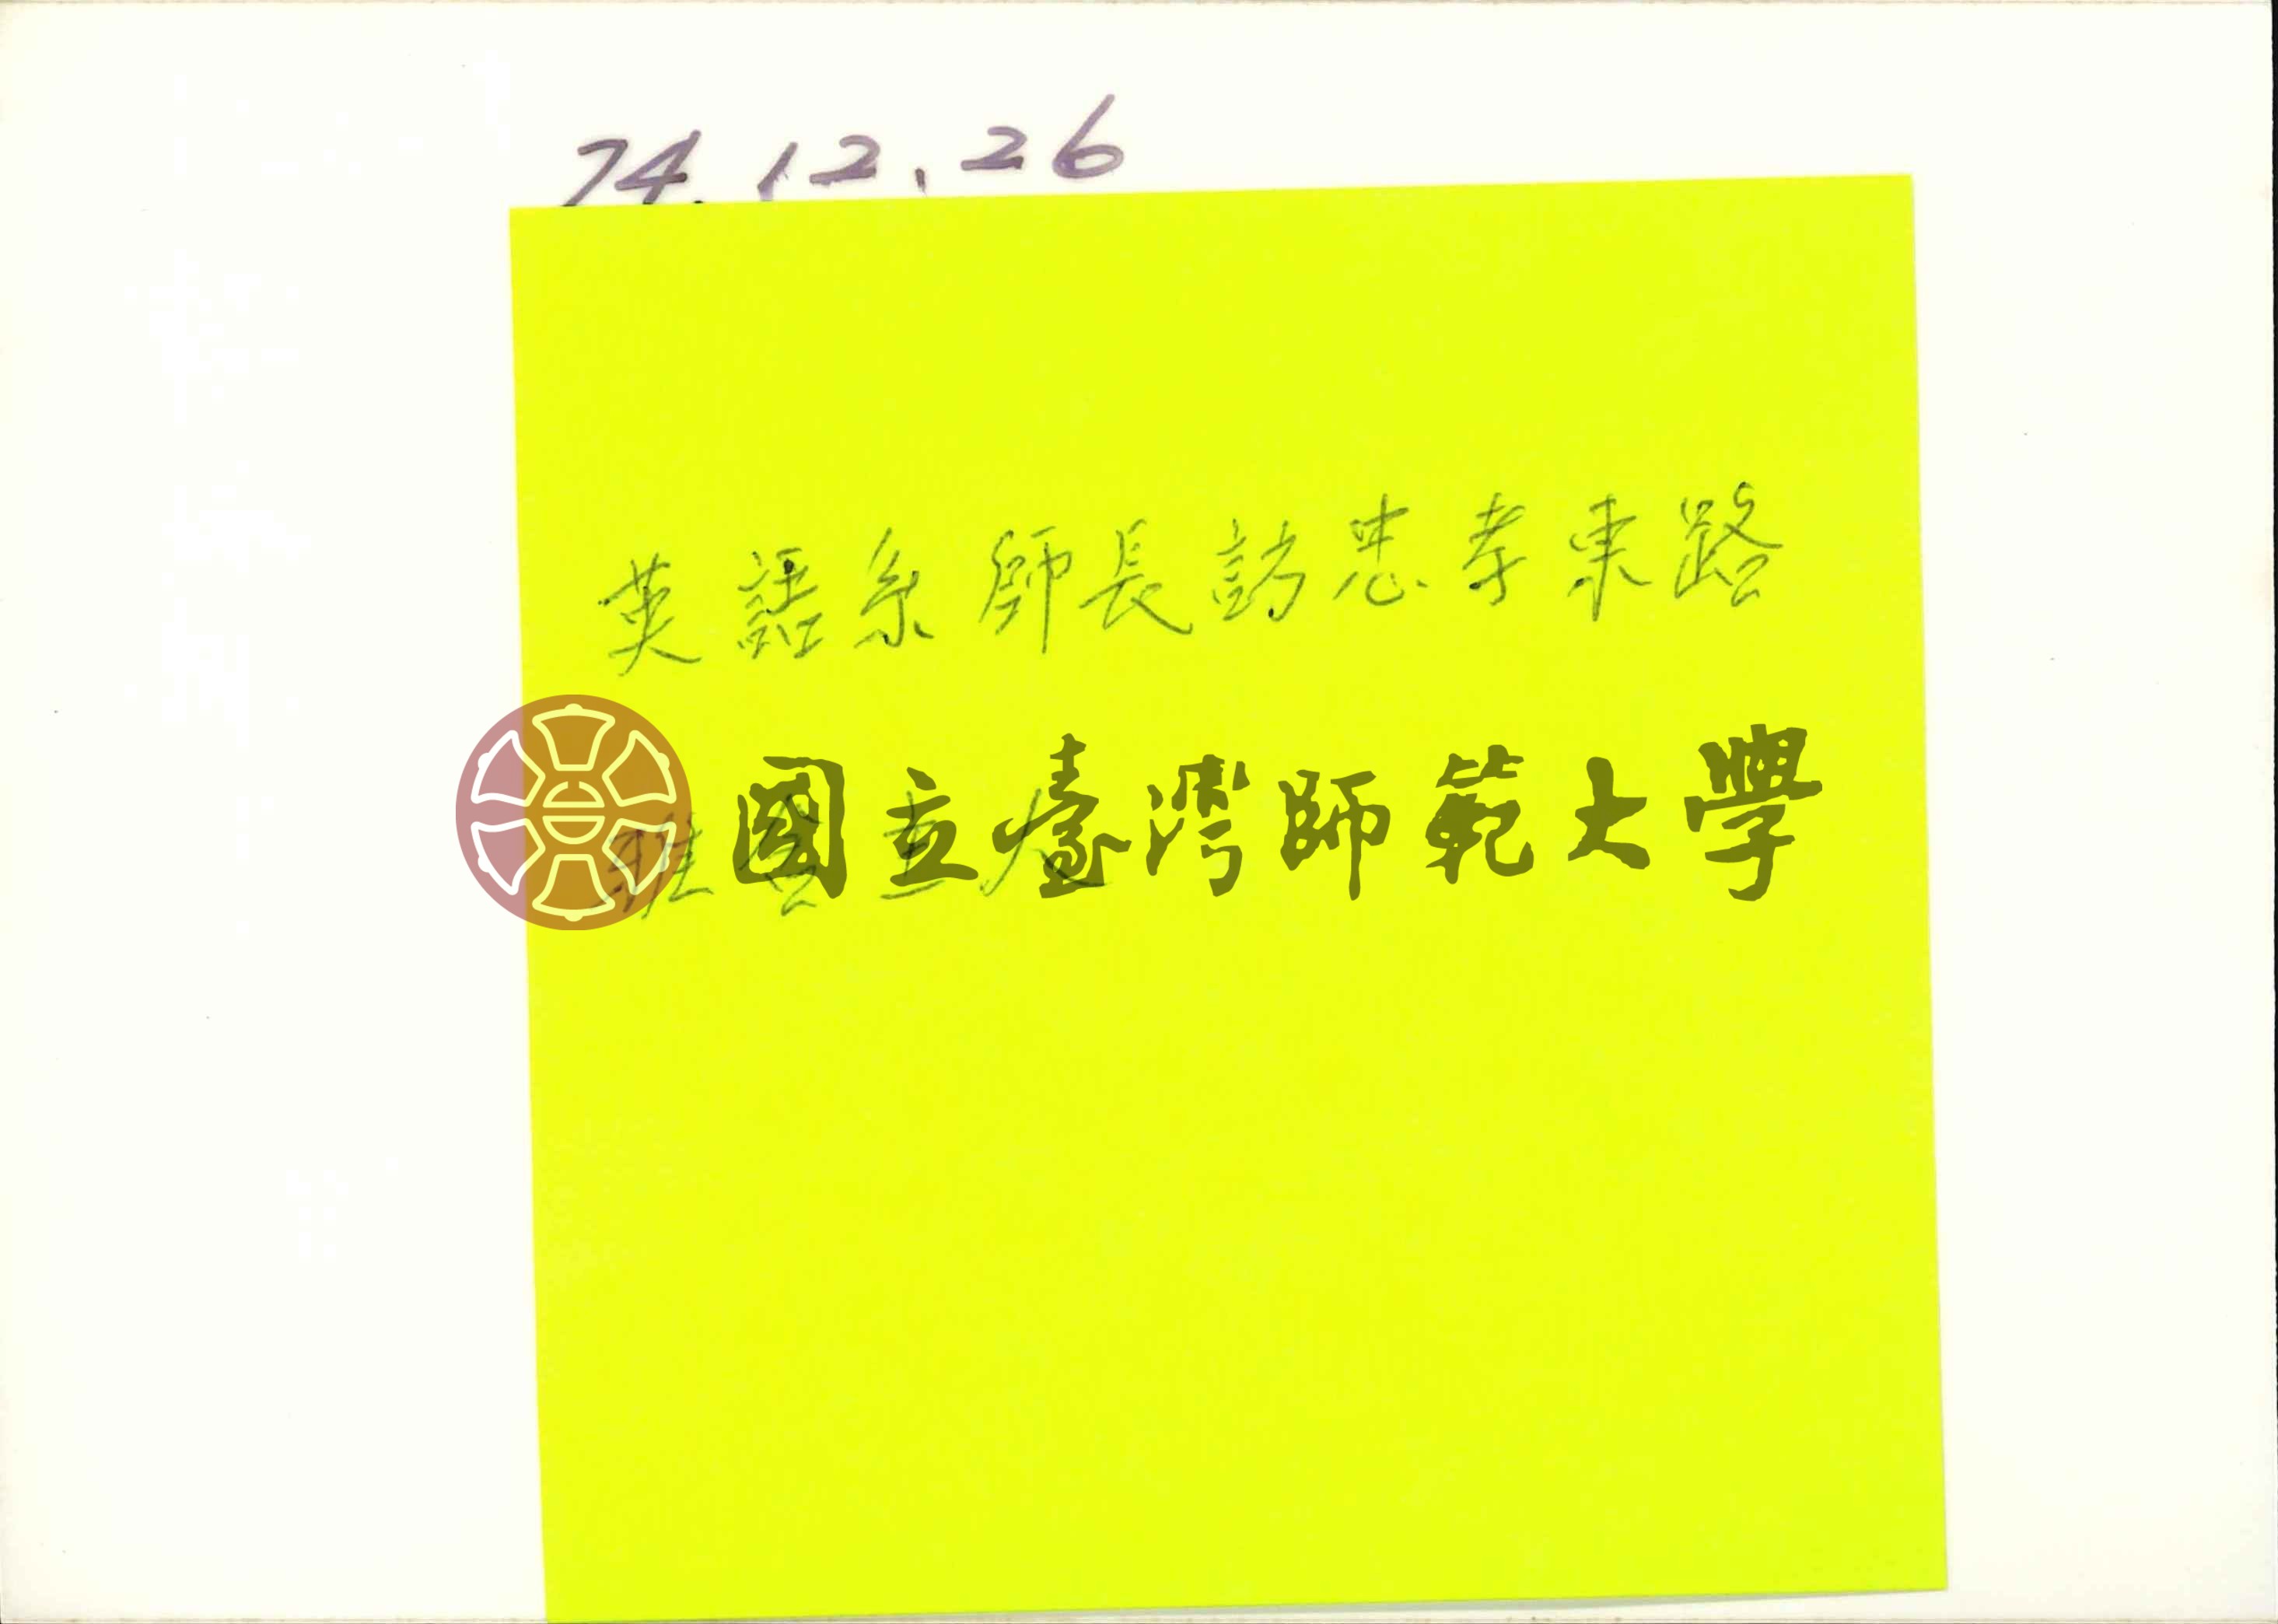 74.12.26
英語系師長訪忠孝東路
國立臺灣師範大學